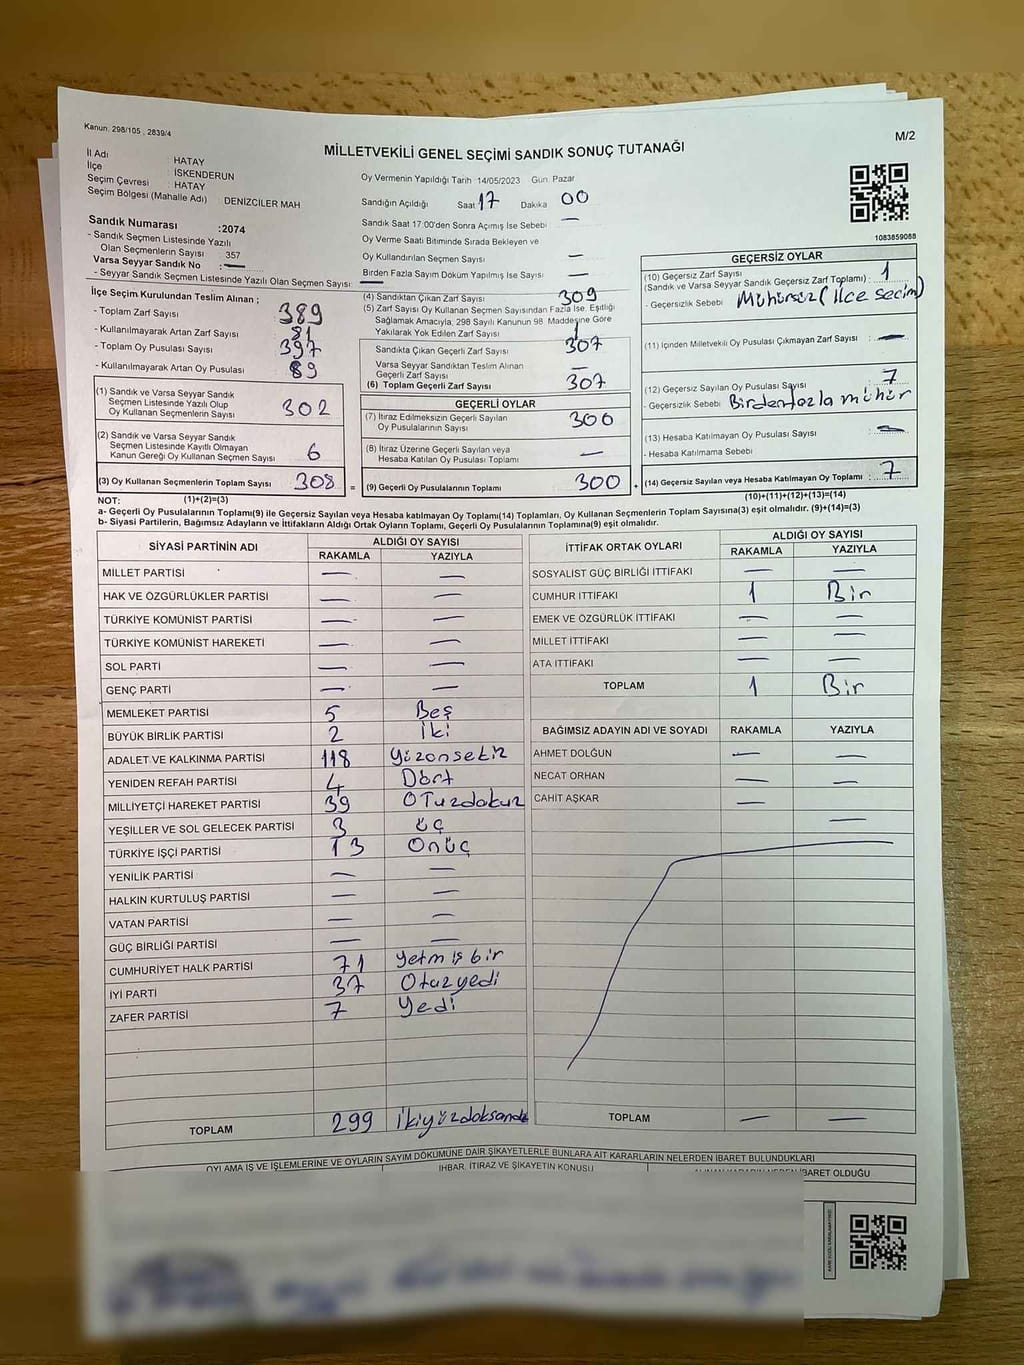 Kanun. 298/105 , 2839/4
M/2
MİLLETVEKİLİ GENEL SEÇİMİ SANDIK SONUÇ TUTANAĞI
İl Adı : HATAY
İlçe : İSKENDERUN
Seçim Çevresi : HATAY
Seçim Bölgesi (Mahalle Adı) : DENİZCİLER MAH
Oy Vermenin Yapıldığı Tarih :14/05/2023 Gün: Pazar
Sandığın Açıldığı Saat 17 Dakika 00
Sandık Saat 17:00'den Sonra Açımış İse Sebebi —
Oy Verme Saati Bitiminde Sırada Bekleyen ve
Oy Kullandırılan Seçmen Sayısı —
Birden Fazla Sayım Döküm Yapılmış İse Sayısı —
Sandık Numarası :2074
- Sandık Seçmen Listesinde Yazılı
Olan Seçmenlerin Sayısı : 357
Varsa Seyyar Sandık No : —
- Seyyar Sandık Seçmen Listesinde Yazılı Olan Seçmen Sayısı: —
1083859088
İlçe Seçim Kurulundan Teslim Alınan ;
- Toplam Zarf Sayısı : 389
- Kullanılmayarak Artan Zarf Sayısı : 81
- Toplam Oy Pusulası Sayısı : 397
- Kullanılmayarak Artan Oy Pusulası : 89
(1) Sandık ve Varsa Seyyar Sandık
Seçmen Listesinde Yazılı Olup
Oy Kullanan Seçmenlerin Sayısı 302
(2) Sandık ve Varsa Seyyar Sandık
Seçmen Listesinde Kayıtlı Olmayan
Kanun Gereği Oy Kullanan Seçmen Sayısı 6
(3) Oy Kullanan Seçmenlerin Toplam Sayısı 308
(4) Sandıktan Çıkan Zarf Sayısı 309
(5) Zarf Sayısı Oy Kullanan Seçmen Sayısından Fazla İse, Eşitliği
Sağlamak Amacıyla, 298 Sayılı Kanunun 98. Maddesine Göre
Yakılarak Yok Edilen Zarf Sayısı 1
Sandıkta Çıkan Geçerli Zarf Sayısı 307
Varsa Seyyar Sandıktan Teslim Alınan
Geçerli Zarf Sayısı —
(6) Toplam Geçerli Zarf Sayısı 307
GEÇERLİ OYLAR
(7) İtiraz Edilmeksizin Geçerli Sayılan
Oy Pusulalarının Sayısı 300
(8) İtiraz Üzerine Geçerli Sayılan veya
Hesaba Katılan Oy Pusulası Toplamı —
= (9) Geçerli Oy Pusulalarının Toplamı 300 +
GEÇERSİZ OYLAR
(10) Geçersiz Zarf Sayısı
(Sandık ve Varsa Seyyar Sandık Geçersiz Zarf Toplamı) : 1
- Geçersizlik Sebebi Mühürsüz (ilce secim)
(11) İçinden Milletvekili Oy Pusulası Çıkmayan Zarf Sayısı : —
(12) Geçersiz Sayılan Oy Pusulası Sayısı : 7
- Geçersizlik Sebebi Birdenfazla mühür
(13) Hesaba Katılmayan Oy Pusulası Sayısı : —
- Hesaba Katılmama Sebebi
(14) Geçersiz Sayılan veya Hesaba Katılmayan Oy Toplamı : 7
NOT: (1)+(2)=(3) (10)+(11)+(12)+(13)=(14)
a- Geçerli Oy Pusulalarının Toplamı(9) ile Geçersiz Sayılan veya Hesaba katılmayan Oy Toplamı(14) Toplamları, Oy Kullanan Seçmenlerin Toplam Sayısına(3) eşit olmalıdır. (9)+(14)=(3)
b- Siyasi Partilerin, Bağımsız Adayların ve İttifakların Aldığı Ortak Oyların Toplamı, Geçerli Oy Pusulalarının Toplamına(9) eşit olmalıdır.
SİYASİ PARTİNİN ADI ALDIĞI OY SAYISI
RAKAMLA YAZIYLA
MİLLET PARTİSİ — —
HAK VE ÖZGÜRLÜKLER PARTİSİ — —
TÜRKİYE KOMÜNİST PARTİSİ — —
TÜRKİYE KOMÜNİST HAREKETİ — —
SOL PARTİ — —
GENÇ PARTİ — —
MEMLEKET PARTİSİ 5 Beş
BÜYÜK BİRLİK PARTİSİ 2 İki
ADALET VE KALKINMA PARTİSİ 118 Yüzonsekiz
YENİDEN REFAH PARTİSİ 4 Dört
MİLLİYETÇİ HAREKET PARTİSİ 39 OTuzdokuz
YEŞİLLER VE SOL GELECEK PARTİSİ 3 üç
TÜRKİYE İŞÇİ PARTİSİ 13 Onüç
YENİLİK PARTİSİ — —
HALKIN KURTULUŞ PARTİSİ — —
VATAN PARTİSİ — —
GÜÇ BİRLİĞİ PARTİSİ — —
CUMHURİYET HALK PARTİSİ 71 Yetmiş bir
İYİ PARTİ 37 Otuzyedi
ZAFER PARTİSİ 7 Yedi
TOPLAM 299 İkiyüzdoksandk
İTTİFAK ORTAK OYLARI ALDIĞI OY SAYISI
RAKAMLA YAZIYLA
SOSYALİST GÜÇ BİRLİĞİ İTTİFAKI — —
CUMHUR İTTİFAKI 1 Bir
EMEK VE ÖZGÜRLÜK İTTİFAKI — —
MİLLET İTTİFAKI — —
ATA İTTİFAKI — —
TOPLAM 1 Bir
BAĞIMSIZ ADAYIN ADI VE SOYADI RAKAMLA YAZIYLA
AHMET DOLĞUN — —
NECAT ORHAN — —
CAHİT AŞKAR — —
TOPLAM — —
OYLAMA İŞ VE İŞLEMLERİNE VE OYLARIN SAYIM DÖKÜMÜNE DAİR ŞİKAYETLERLE BUNLARA AİT KARARLARIN NELERDEN İBARET BULUNDUKLARI
İHBAR, İTİRAZ VE ŞİKAYETİN KONUSU
ALINAN KARARIN NEDEN İBARET OLDUĞU